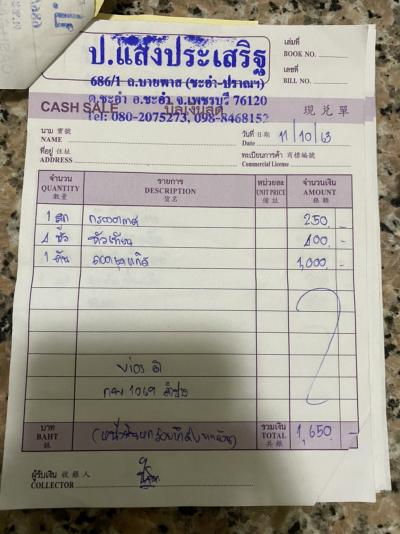 ป.แสงประเสริฐ
686/1 ถ.บายพาส (ชะอำ-ปราณฯ)
ต.ชะอำ อ.ชะอำ จ.เพชรบุรี 76120
Tel: 080-2075273, 098-8468152
เล่มที่
BOOK NO.
เลขที่
BILL NO.
CASH SALE บิลเงินสด 現兌單
นาม 寶號
NAME
วันที่ 日期
Date 11/10/63
ที่อยู่ 住址
ADDRESS
ทะเบียนการค้า 商標編號
Commercial License
จำนวน รายการ หน่วยละ จำนวนเงิน
QUANTITY DESCRIPTION UNIT PRICE AMOUNT
數量 貨名 備註 銀額
1 ลูก กรองอากาศ 250.-
4 หัว หัวเทียน 400.-
1 1,000.-
1069
บาท รวมเงิน
BAHT TOTAL 1,650.-
銖 共銀
(หนึ่งพันหกร้อยห้าสิบบาทถ้วน)
ผู้รับเงิน 收銀人
COLLECTOR